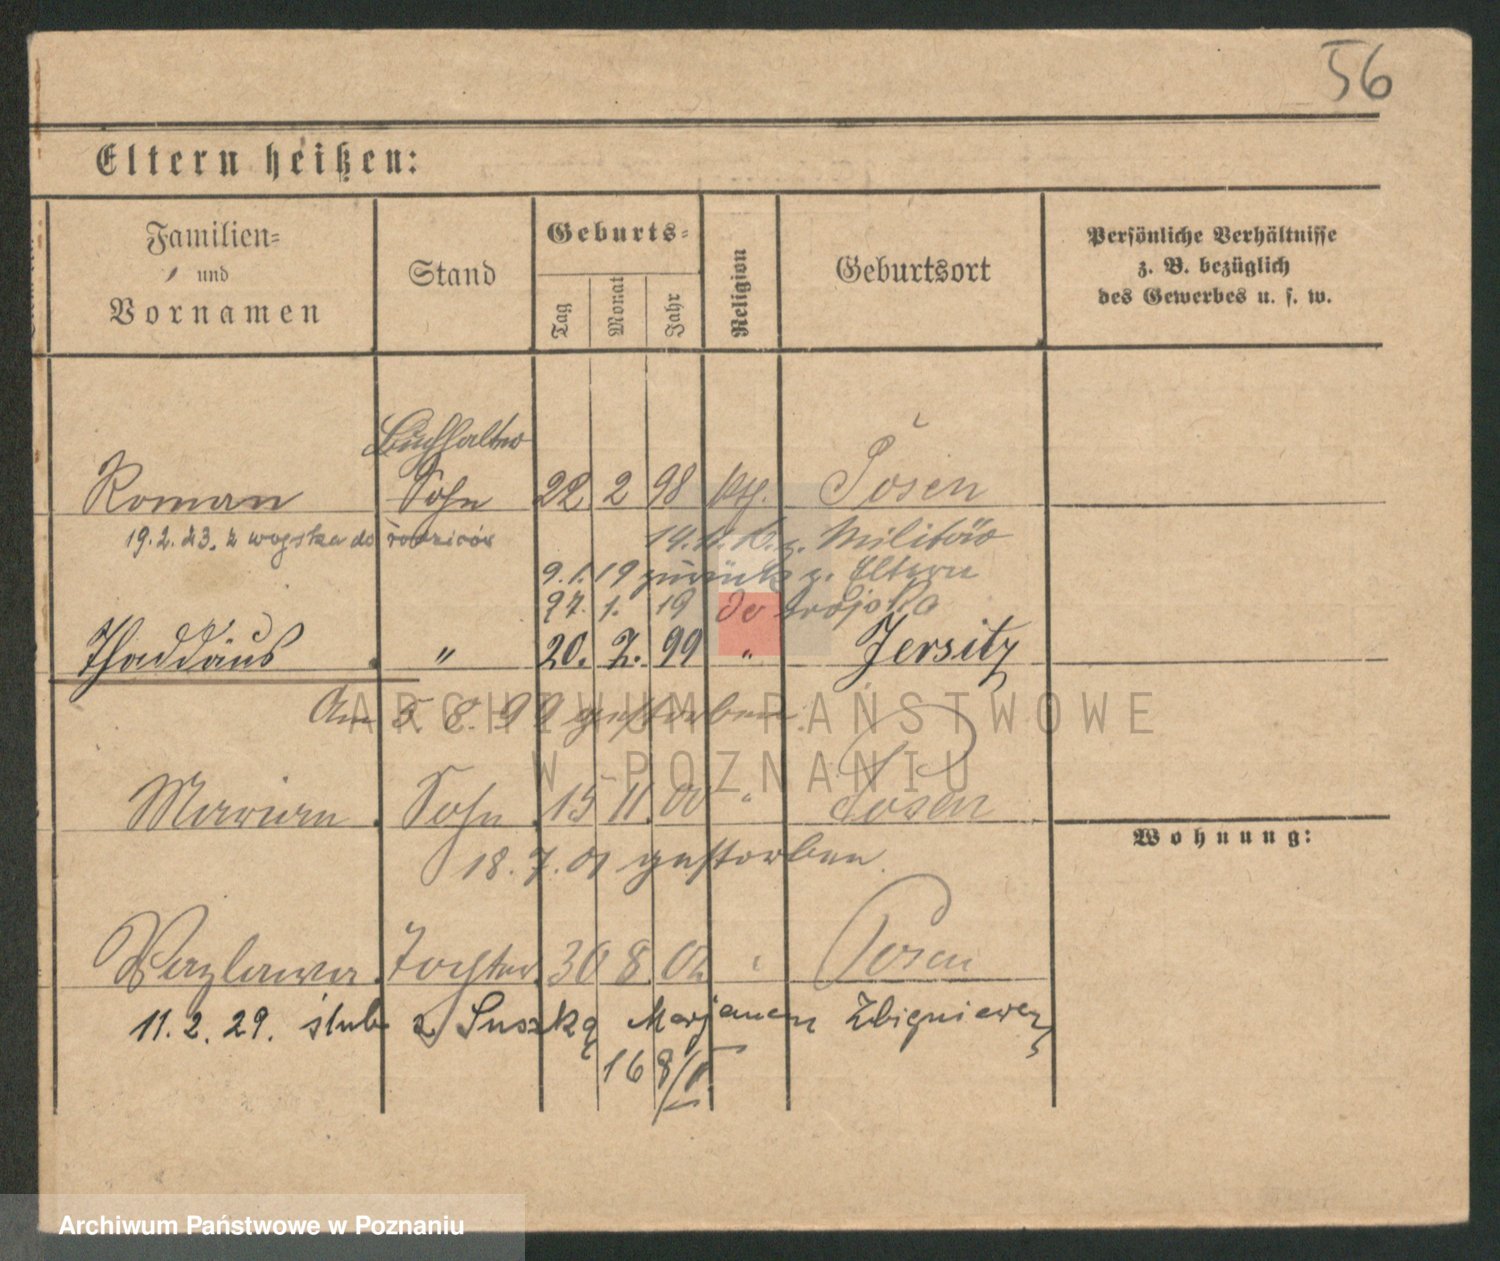 56
Eltern heißen:
Familien=
und
Vornamen
Stand
Geburts=
Tag
Monat
Jahr
Religion
Geburtsort
Persönliche Verhältnisse
z. B. bezüglich
des Gewerbes u. s. w.
Buchhalter
Roman Sohn 22 2 98 kth. Posen
19.2.23. z wojska do rodziców
z. Militär
9.1.19 zurück z. Eltern
27. 1. 19 do wojska
Thaddäus " 20. 2. 99 " Jersitz
Am 5. 8. 99 gestorben.
ARCHIWUM PAŃSTWOWE
W POZNANIU
Marian Sohn 15 11. 00 " Posen
Wohnung:
18. 7. 01 gestorben.
Wazlawa Tochter 30 8 02 " Posen
11. 2. 29. ślub z Suszką Marjanem Zbigniewem
16 8/
Archiwum Państwowe w Poznaniu